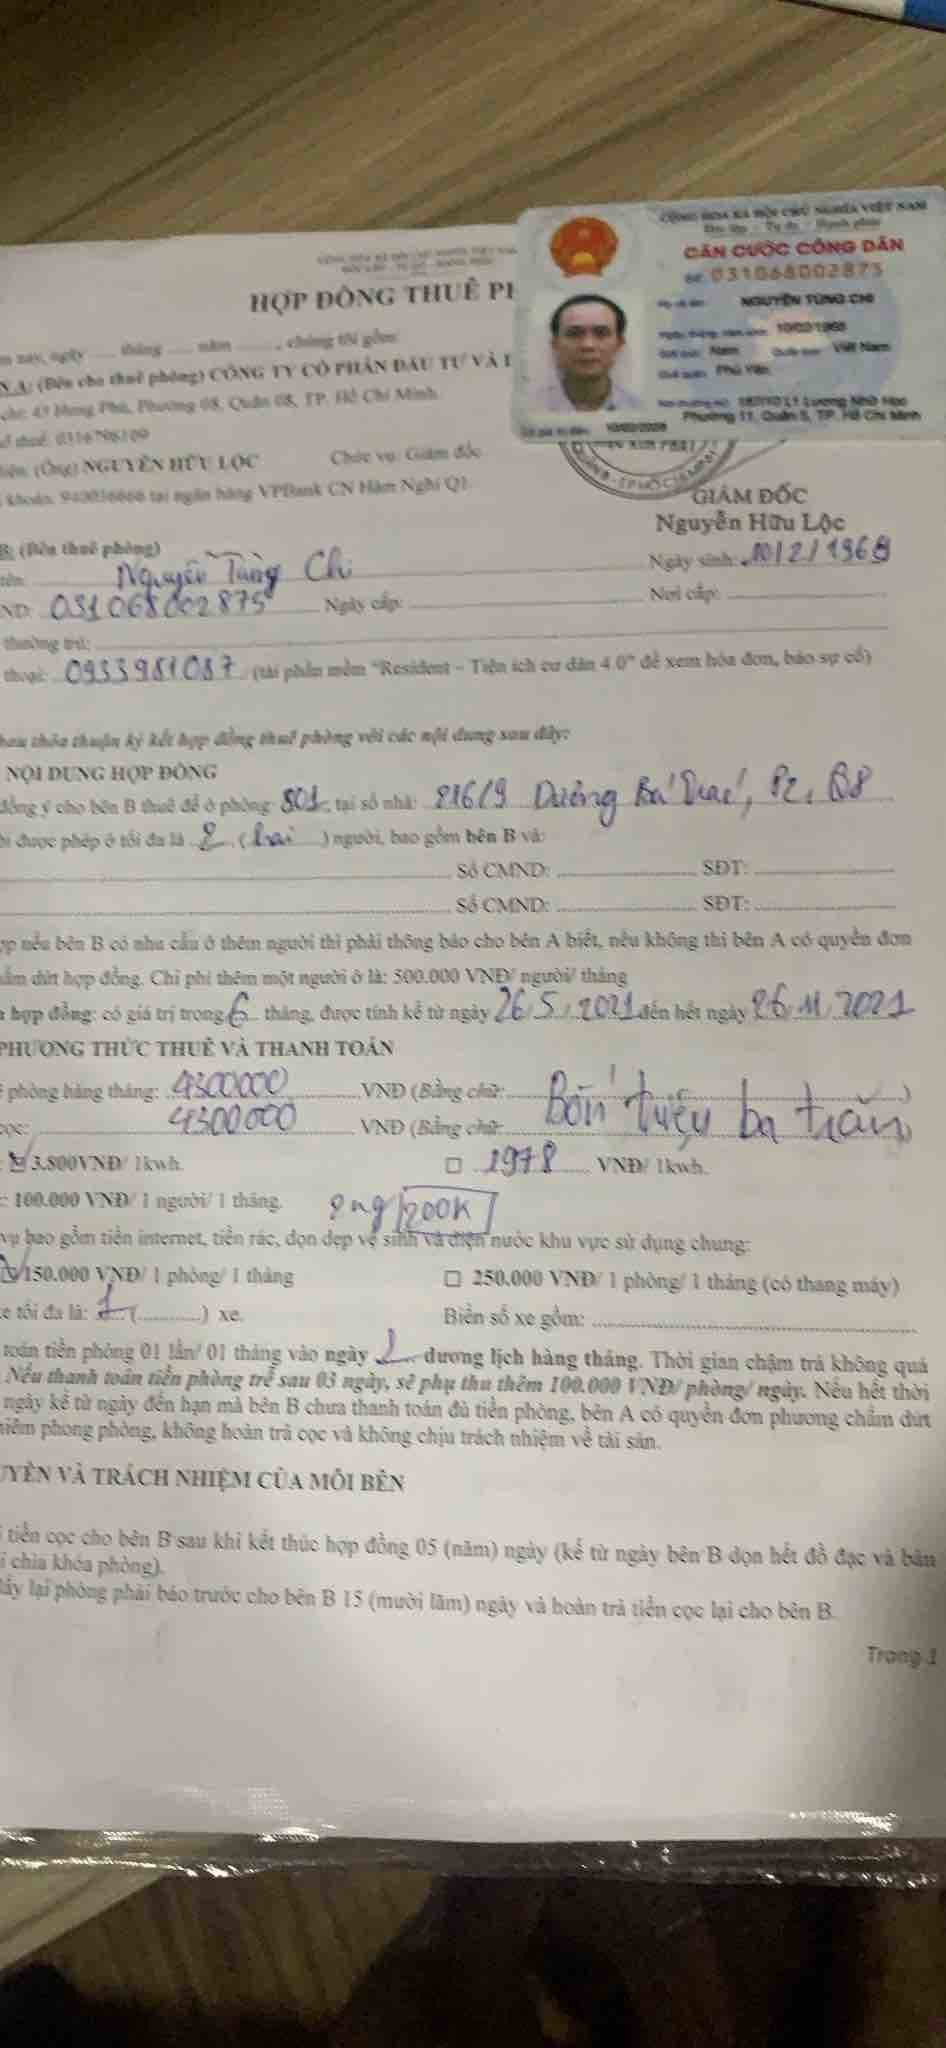 CỘNG HÒA XÃ HỘI CHỦ NGHĨA VIỆT NAM
Độc lập - Tự do - Hạnh phúc
CĂN CƯỚC CÔNG DÂN
Số: 031068002875
NGUYỄN TÙNG CHI
10/02/1968
Nam Việt Nam
Phú Yên
Lương Nhữ Học
Phường 11, Quận 5, TP. Hồ Chí Minh
HỢP ĐỒNG THUÊ PH
nay, ngày tháng năm , chúng tôi gồm:
N A: (Bên cho thuê phòng) CÔNG TY CỔ PHẦN ĐẦU TƯ VÀ
chỉ: 45 Hưng Phú, Phường 08, Quận 08, TP. Hồ Chí Minh
thuế: 0316798109
diện: (Ông) NGUYỄN HỮU LỘC Chức vụ: Giám đốc
khoản: 940036666 tại ngân hàng VPBank CN Hàm Nghi Q1.
QUẬN 8 - TP HỒ CHÍ MINH
GIÁM ĐỐC
Nguyễn Hữu Lộc
B: (Bên thuê phòng)
tên: Nguyễn Tùng Chi Ngày sinh: 10/2/1968
ND: 031068002875 Ngày cấp: Nơi cấp:
thường trú:
thoại: 0933981087 (tải phần mềm "Resident – Tiện ích cư dân 4.0" để xem hóa đơn, báo sự cố)
hau thỏa thuận ký kết hợp đồng thuê phòng với các nội dung sau đây:
NỘI DUNG HỢP ĐỒNG
đồng ý cho bên B thuê để ở phòng: 801, tại số nhà: 216/9 Dương Bá Trạc, P2, Q8
được phép ở tối đa là 2 (hai) người, bao gồm bên B và:
Số CMND: SĐT:
Số CMND: SĐT:
ợp nếu bên B có nhu cầu ở thêm người thì phải thông báo cho bên A biết, nếu không thì bên A có quyền đơn
hấm dứt hợp đồng. Chi phí thêm một người ở là: 500.000 VNĐ/ người/ tháng
hợp đồng: có giá trị trong 6 tháng, được tính kể từ ngày 26/5/2021 đến hết ngày 26/11/2021
PHƯƠNG THỨC THUÊ VÀ THANH TOÁN
phòng hàng tháng: 4300000 VNĐ (Bằng chữ: Bốn triệu ba trăm)
cọc: 4300000 VNĐ (Bằng chữ:
3.800VNĐ/ 1kwh. 1978 VNĐ/ 1kwh.
: 100.000 VNĐ/ 1 người/ 1 tháng. 2ng/200K
vụ bao gồm tiền internet, tiền rác, dọn dẹp vệ sinh và điện nước khu vực sử dụng chung:
150.000 VNĐ/ 1 phòng/ 1 tháng 250.000 VNĐ/ 1 phòng/ 1 tháng (có thang máy)
e tối đa là: 1 ( ) xe. Biển số xe gồm:
toán tiền phòng 01 lần/ 01 tháng vào ngày dương lịch hàng tháng. Thời gian chậm trả không quá
Nếu thanh toán tiền phòng trễ sau 03 ngày, sẽ phụ thu thêm 100.000 VNĐ/ phòng/ ngày. Nếu hết thời
ngày kể từ ngày đến hạn mà bên B chưa thanh toán đủ tiền phòng, bên A có quyền đơn phương chấm dứt
niêm phong phòng, không hoàn trả cọc và không chịu trách nhiệm về tài sản.
UYỀN VÀ TRÁCH NHIỆM CỦA MỖI BÊN
tiền cọc cho bên B sau khi kết thúc hợp đồng 05 (năm) ngày (kể từ ngày bên B dọn hết đồ đạc và bàn
chìa khóa phòng).
lấy lại phòng phải báo trước cho bên B 15 (mười lăm) ngày và hoàn trả tiền cọc lại cho bên B.
Trang 1